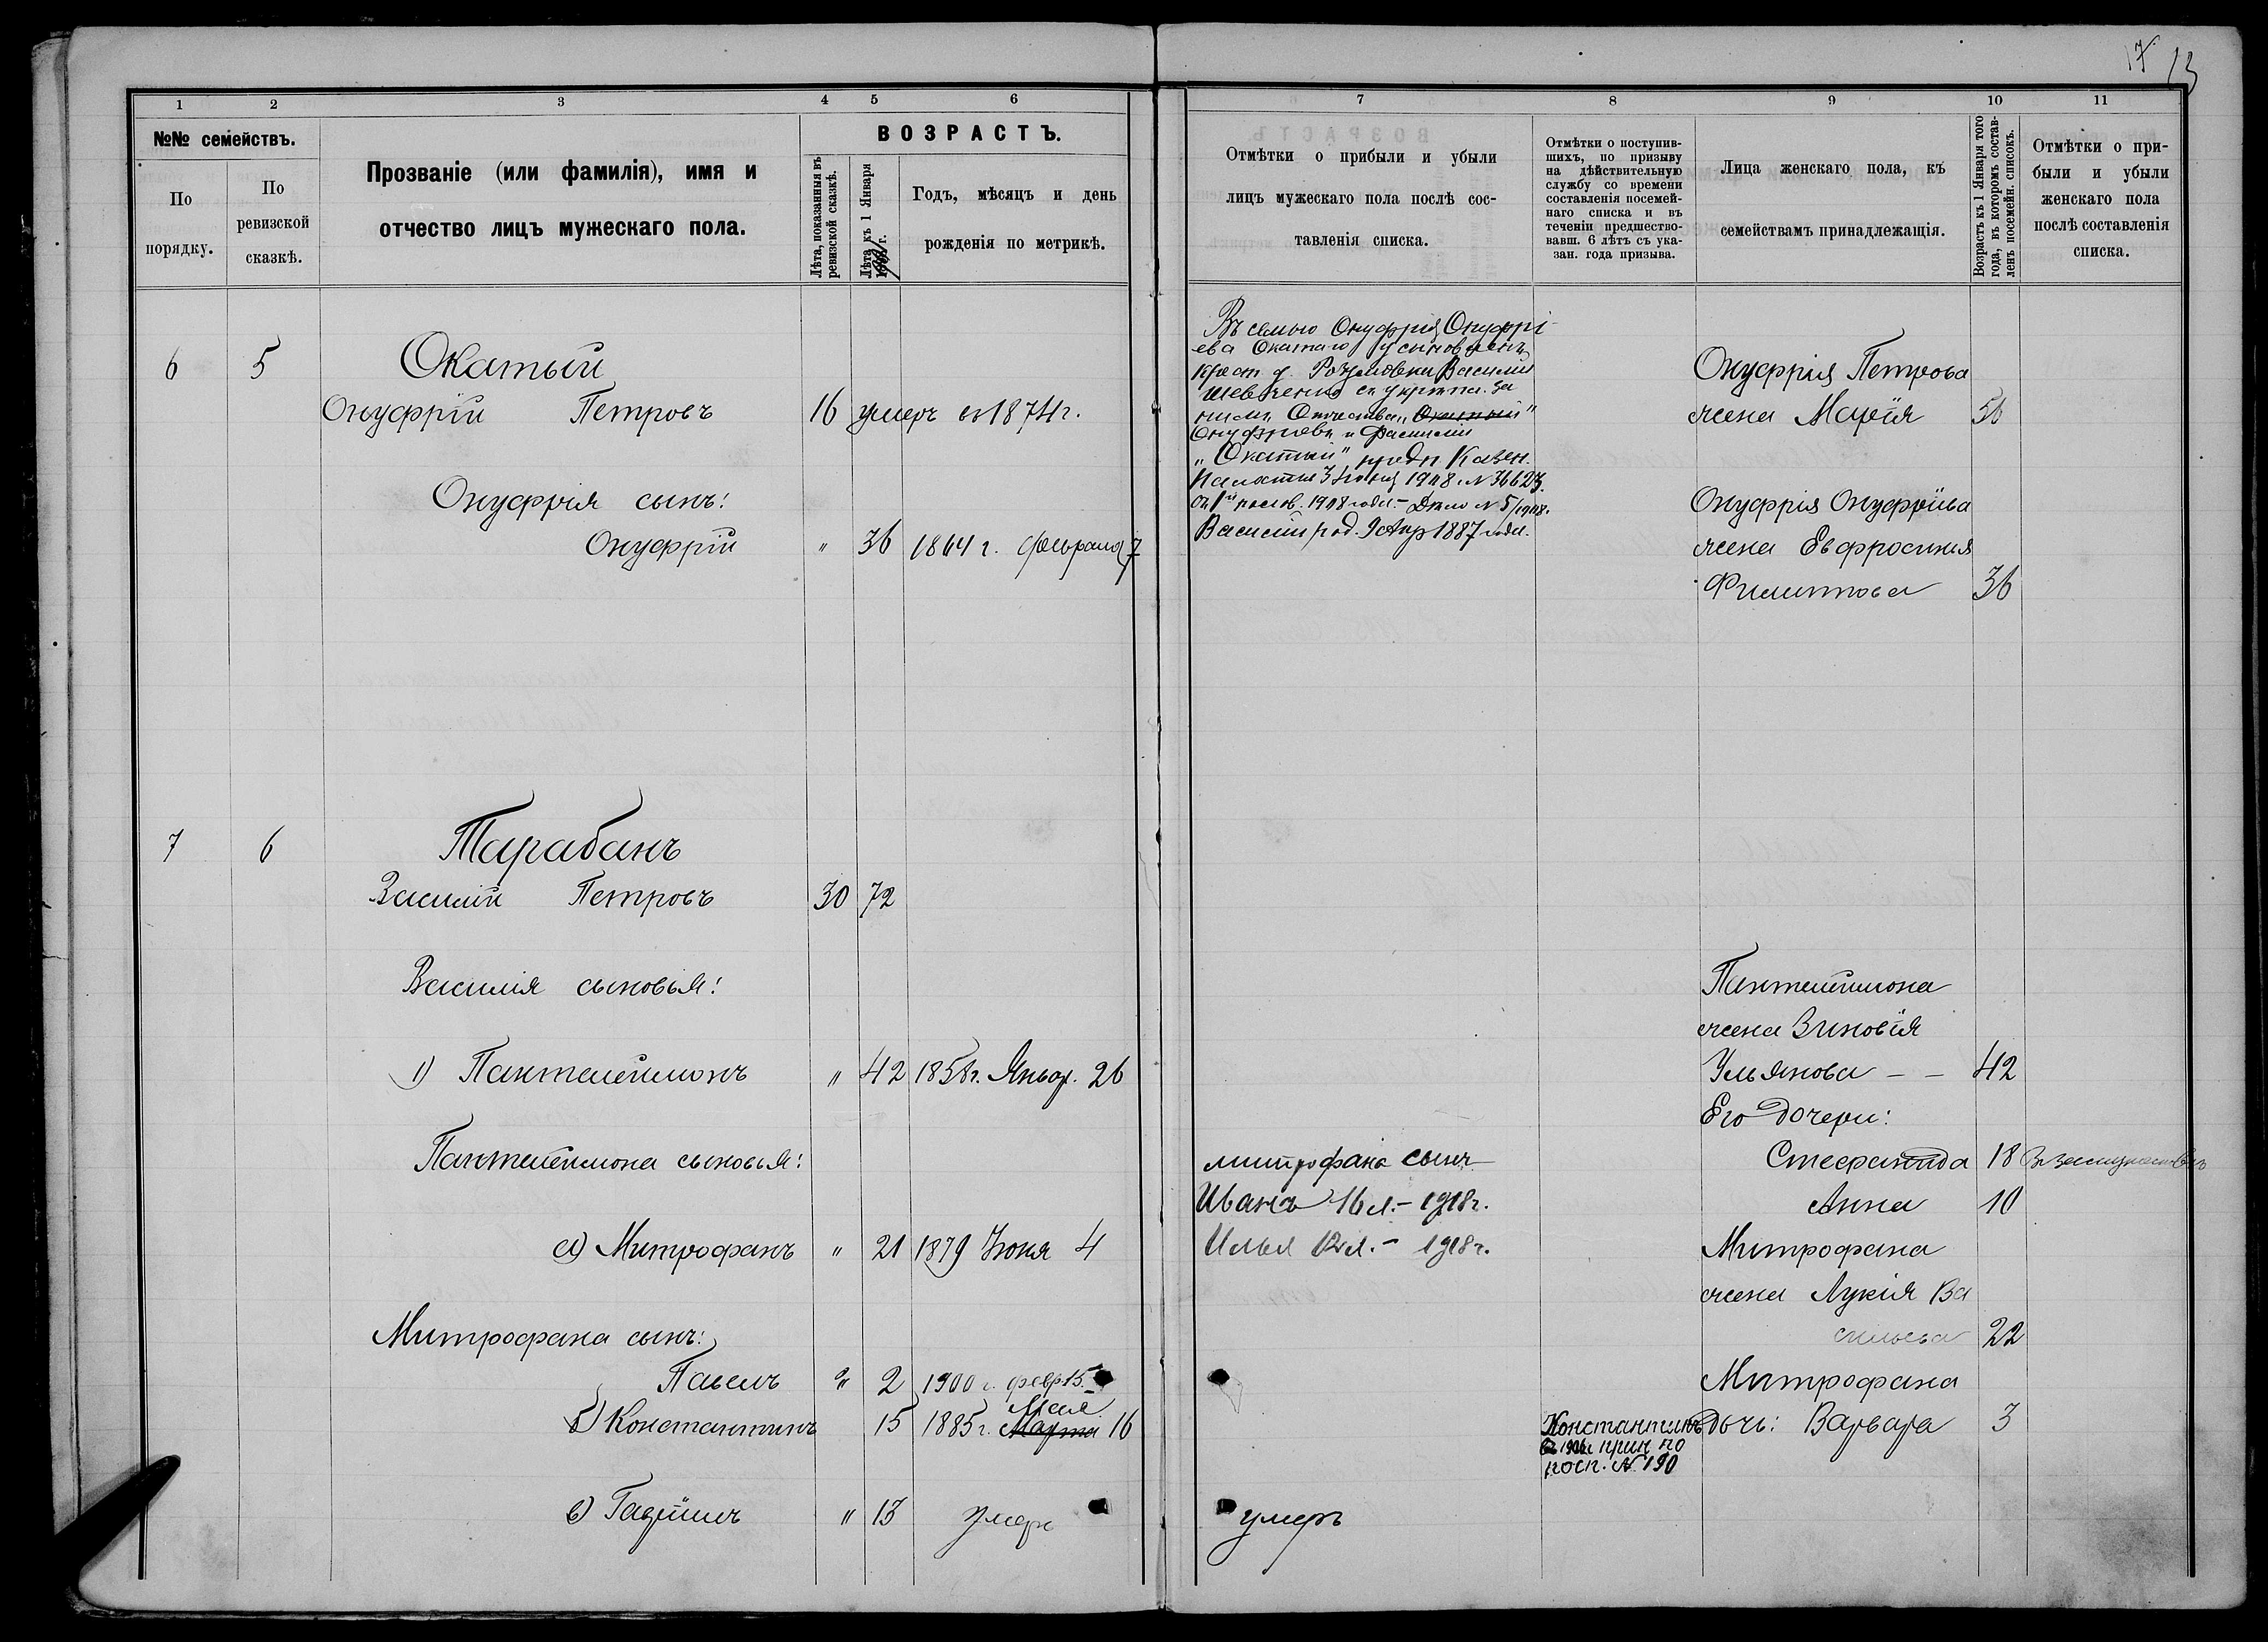 17 13
1 2 3 4 5 6
№№ семействъ.
По порядку.
По ревизской сказкѣ.
Прозваніе (или фамилія), имя и
отчество лицъ мужескаго пола.
ВОЗРАСТЪ.
Лѣта, показанныя въ
ревизской сказкѣ.
Лѣта къ 1 Января
г.
Годъ, мѣсяцъ и день
рожденія по метрикѣ.
6 5 Окатый
Онуфрій Петровъ 16 умеръ въ 1874 г.
Онуфрія сынъ:
Онуфрій " 36 1864 г. Февраля 7
7 6 Тарабанъ
Василій Петровъ 30 72
Василія сыновья:
1) Пантелеймонъ " 42 1858 г. Январ. 26
Пантелеймона сыновья:
а) Митрофанъ " 21 1879 Іюня 4
Митрофана сынъ:
Павелъ " 2 1900 г. февр 15.
Мая
б) Константинъ 15 1885 г. Марта 16
в) Гавріилъ " 13 Умеръ
7 8 9 10 11
Отмѣтки о прибыли и убыли
лицъ мужескаго пола послѣ сос-
тавленія списка.
Отмѣтки о поступив-
шихъ, по призыву
на дѣйствительную
службу со времени
составленія посемей-
наго списка и въ
теченіи предшество-
вавш. 6 лѣтъ съ ука-
зан. года призыва.
Лица женскаго пола, къ
семействамъ принадлежащія.
Возрастъ къ 1 Января того
года, въ которомъ состав-
ленъ посемейн. списокъ.
Отмѣтки о при-
были и убыли
женскаго пола
послѣ составленія
списка.
Въ семью Онуфрія Онуфрі-
ева Окатаго усыновленъ
крест. д. Василій
Шевченко съ укрѣпл. за
нимъ Отчества „Окатый"
Онуфріевъ и Фамиліи
„Окатый" пред. Казен.
Палаты 3 Іюня 1908 № 36623.
съ 1й полов. 1908 года. – Дѣло № 5/1908.
Василій род. 9 Апр 1887 года.
Онуфрія Петрова
жена Марія 56
Онуфрія Онуфріева
жена Евфросинія
Филиппова 36
Пантелеймона
жена Зиновія
Ульянова – – 42
Его дочери:
Стефанида 18 Въ замужествѣ
Анна 10
Митрофана сынъ
Иванъ 16 л. – 1918 г.
Илья 12 л. – 1918 г.
Митрофана
жена Лукія Ва
сильева 22
Митрофана
дочь: Варвара 3
Константинъ
въ 1906 прин по
посп. № 190
умеръ